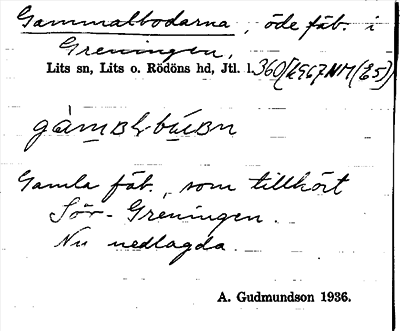 Gammalbodarna, öde fäb. i
Greningen,
Lits sn, Lits o. Rödöns hd, Jtl. l.
Gamla fäb., som tillhört
Sör-Greningen.
Nu nedlagda.
A. Gudmundson 1936.